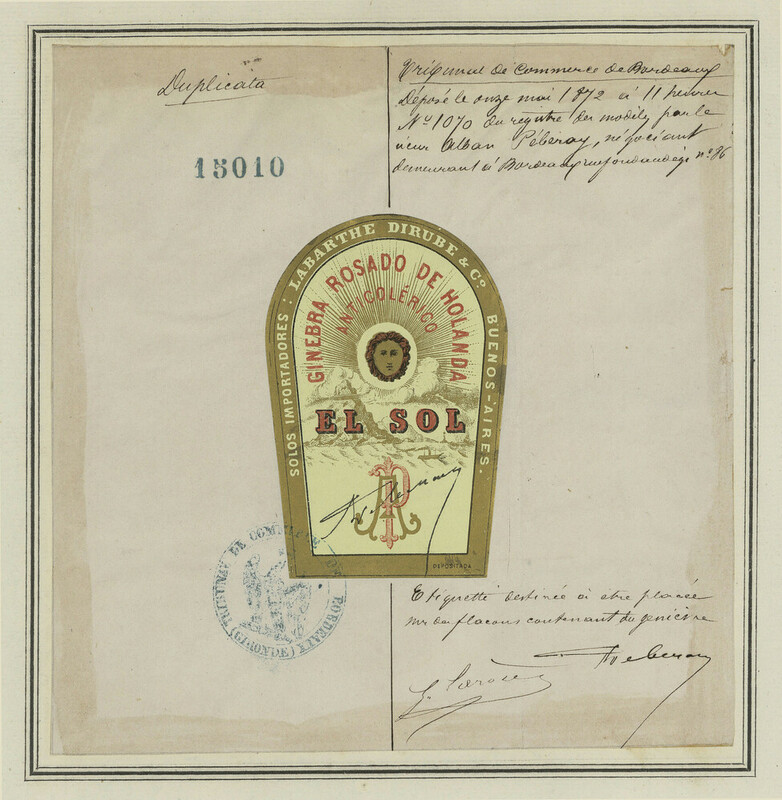 Duplicata
15010
Tribunal de Commerce de Bordeaux
Déposé le onze mai 1872 à 11 heures
No 1070 du registre des modèles par le
sieur Alban Péberay, négociant
demeurant à Bordeaux rue fondaudège no 86
SOLOS IMPORTADORES : LABARTHE DIRUBE & Co. BUENOS-AIRES.
GINEBRA ROSADO DE HOLANDA
ANTICOLÉRICO
EL SOL
AP
DEPOSITADA
TRIBUNAL DE COMMERCE DE BORDEAUX
(GIRONDE)
Etiquette destinée à etre placée
sur des flacons contenant du genièvre